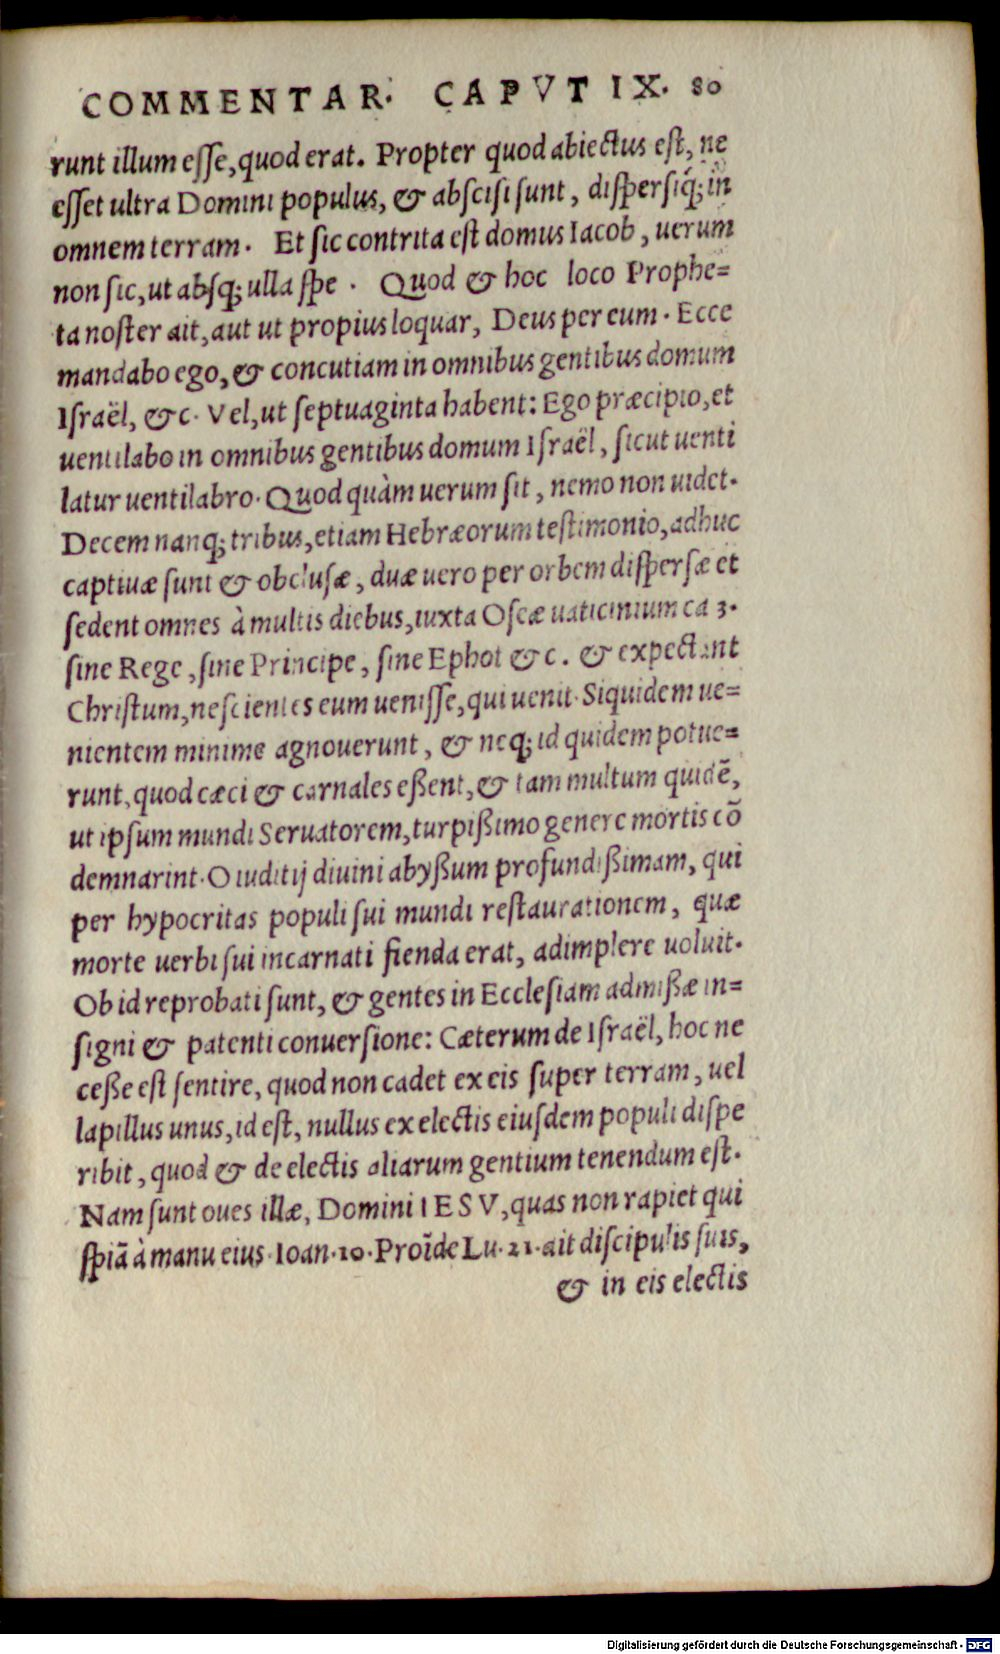 COMMENTAR. CAPVT IX. 80
runt illum eſſe, quod erat. Propter quod abiectus eſt, ne
eſſet ultra Domini populus, & abſciſi ſunt, diſperſiq́; in
omnem terram. Et ſic contrita eſt domus Iacob, uerum
non ſic, ut abſq; ulla ſpe. Quod & hoc loco Prophe=
ta noſter ait, aut ut propius loquar, Deus per eum. Ecce
mandabo ego, & concutiam in omnibus gentibus domum
Iſraël, &c. Vel, ut ſeptuaginta habent: Ego præcipio, et
uentilabo in omnibus gentibus domum Iſraël, ſicut uenti
latur uentilabro. Quod quàm uerum ſit, nemo non uidet.
Decem nanq; tribus, etiam Hebræorum teſtimonio, adhuc
captiuæ ſunt & obcluſæ, duæ uero per orbem diſperſæ et
ſedent omnes à multis diebus, iuxta Oſeæ uaticinium ca 3.
ſine Rege, ſine Principe, ſine Ephot &c. & expectant
Chriſtum, neſcientes eum ueniſſe, qui uenit. Siquidem ue=
nientem minime agnouerunt, & neq; id quidem potue=
runt, quod cæci & carnales eßent, & tam multum quidē,
ut ipſum mundi Seruatorem, turpißimo genere mortis cō
demnarint. O iuditij diuini abyßum profundißimam, qui
per hypocritas populi ſui mundi reſtaurationem, quæ
morte uerbi ſui incarnati fienda erat, adimplere uoluit.
Ob id reprobati ſunt, & gentes in Eccleſiam admißæ in=
ſigni & patenti conuerſione: Cæterum de Iſraël, hoc ne
ceße eſt ſentire, quod non cadet ex eis ſuper terram, uel
lapillus unus, id eſt, nullus ex electis eiuſdem populi diſpe
ribit, quod & de electis aliarum gentium tenendum eſt.
Nam ſunt oues illæ, Domini IESV, quas non rapiet qui
ſpiā à manu eius. Ioan. 10. Proīde Lu. 21. ait diſcipulis ſuis,
& in eis electis
Digitalisierung gefördert durch die Deutsche Forschungsgemeinschaft - DFG